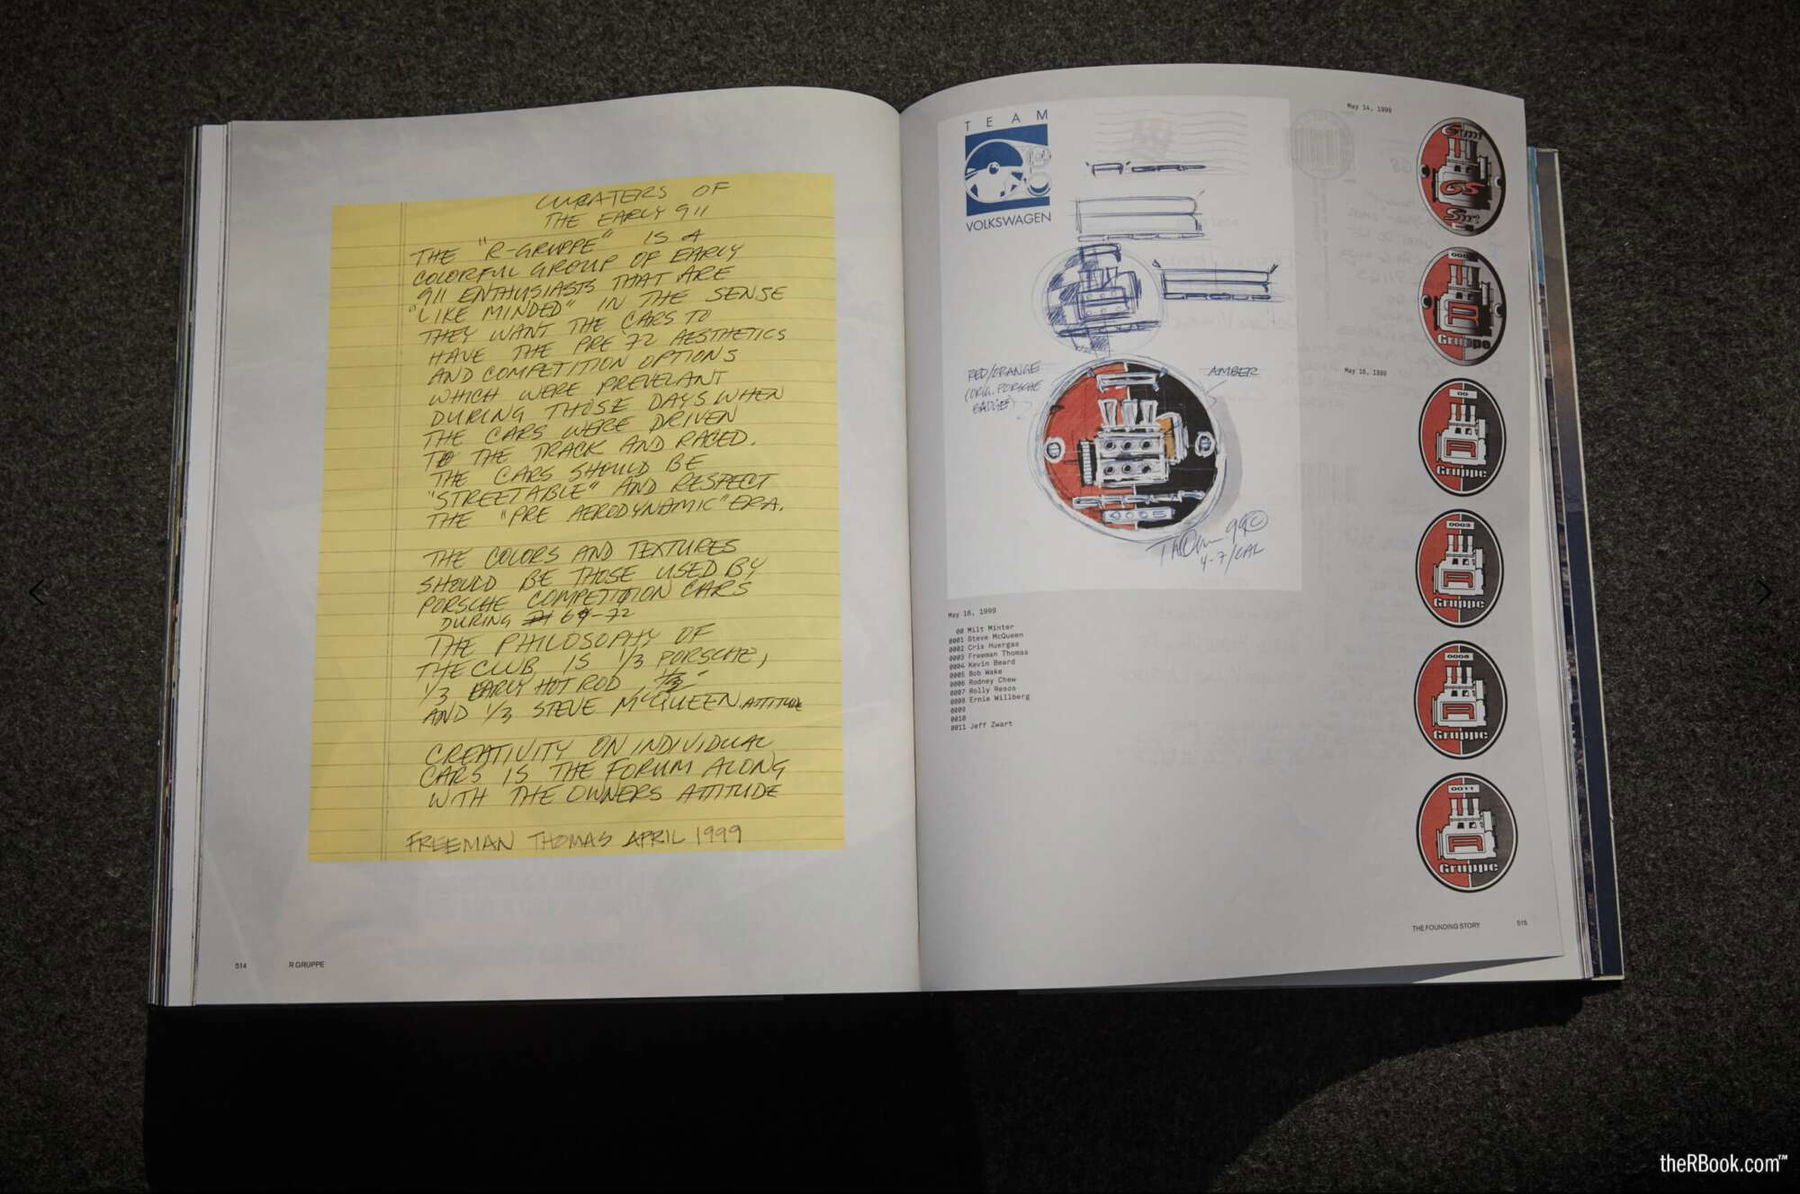 CURATERS OF
THE EARLY 911
THE "R-GRUPPE" IS A
COLORFUL GROUP OF EARLY
911 ENTHUSIASTS THAT ARE
"LIKE MINDED" IN THE SENSE
THEY WANT THE CARS TO
HAVE THE PRE 72 AESTHETICS
AND COMPETITION OPTIONS
WHICH WERE PREVELANT
DURING THOSE DAYS WHEN
THE CARS WERE DRIVEN
TO THE TRACK AND RACED.
THE CARS SHOULD BE
"STREETABLE" AND RESPECT
THE "PRE AERODYNAMIC" ERA.
THE COLORS AND TEXTURES
SHOULD BE THOSE USED BY
PORSCHE COMPETITION CARS
DURING 64-72
THE PHILOSOPHY OF
THE CLUB IS 1/3 PORSCHE,
1/3 EARLY HOT ROD
AND 1/3 STEVE McQUEEN ATTITUDE
CREATIVITY ON INDIVIDUAL
CARS IS THE FORUM ALONG
WITH THE OWNERS ATTITUDE
FREEMAN THOMAS APRIL 1999
514 R GRUPPE
TEAM
VOLKSWAGEN
'R' GRP
RED/ORANGE
(ORIG. PORSCHE
BADGE)
AMBER
0005
Thomas 99©
4-7/CAL
May 18, 1999
00 Milt Minter
0001 Steve McQueen
0002 Cris Huergas
0003 Freeman Thomas
0004 Kevin Beard
0005 Bob Wake
0006 Rodney Chew
0007 Rolly Resos
0008 Ernie Willberg
0009
0010
0011 Jeff Zwart
May 14, 1999
GS
R
Gruppe
May 16, 1999
00
R
Gruppe
0003
R
Gruppe
0008
R
Gruppe
0011
R
Gruppe
THE FOUNDING STORY 515
theRBook.com™